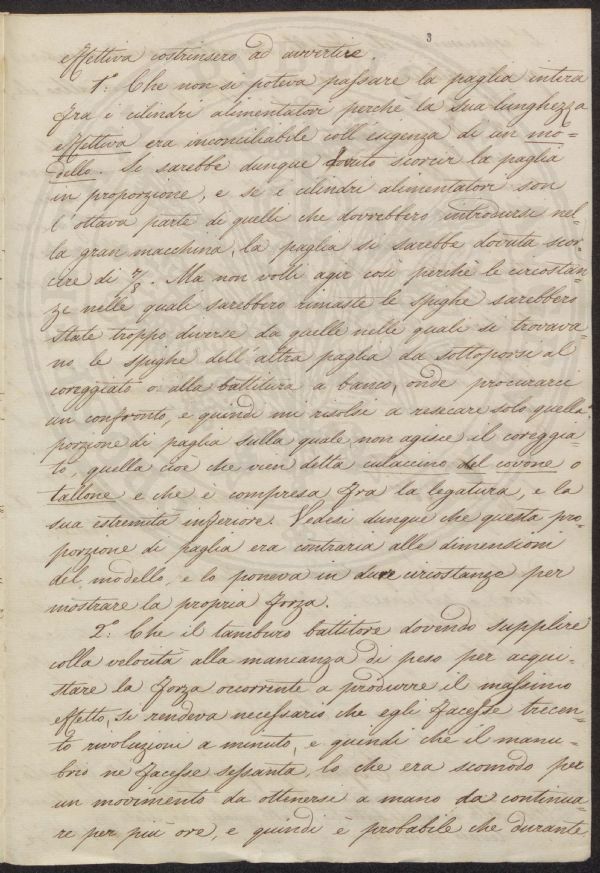 3
effettiva costrinsero ad avvertire
1.º Che non si poteva passare la paglia intera
fra i cilindri alimentatori perchè la sua lunghezza
effettiva era inconciliabile coll'esigenza di un mo=
dello. Si sarebbe dunque dovuto scorcir la paglia
in proporzione, e se i cilindri alimentatori son
l'ottava parte di quelli che dovrebbero introdursi nel=
la gran macchina, la paglia si sarebbe dovuta scor=
cire di 7/8. Ma non volli agir così perchè le circostan=
ze nelle quali sarebbero rimaste le spighe sarebbero
state troppo diverse da quelle nelle quali si trovava=
no le spighe dell'altra paglia da sottoporsi al
coreggiato o alla battitura a banco, onde procurarci
un confronto, e quindi mi risolsi a resecare solo quella
porzione di paglia sulla quale non agisce il coreggia=
to, quella cioè che vien detta culaccino del covone o
tallone e che è compresa fra la legatura, e la
sua estremità inferiore. Vedesi dunque che questa pro=
porzione di paglia era contraria alle dimensioni
del modello, e lo poneva in dure circostanze per
mostrare la propria forza.
2.º Che il tamburo battitore dovendo supplire
colla velocità alla mancanza di peso per acqui=
stare la forza occorrente a produrre il massimo
effetto, si rendeva necessario che egli facesse trecen=
to rivoluzioni a minuto, e quindi che il manu=
brio ne facesse sessanta, lo che era scomodo per
un movimento da ottenersi a mano da continua=
re per più ore, e quindi è probabile che durante